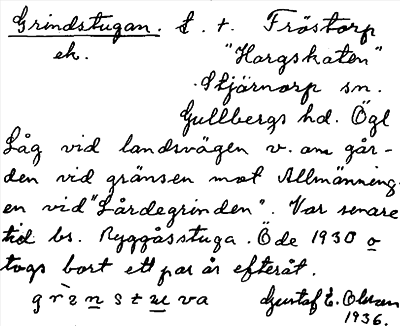 Grindstugan. l. t. Fröstorp
ek. "Horgskaten"
Stjärnorp sn.
Gullbergs hd. Ögl
Låg vid landsvägen v. om går-
den vid gränsen mot Allmänning
en vid "Lårdegrinden". Var senare
tid bs. Ryggåsstuga. Öde 1930 o
togs bort ett par år efteråt.
Gustaf E. Olsson
1936.